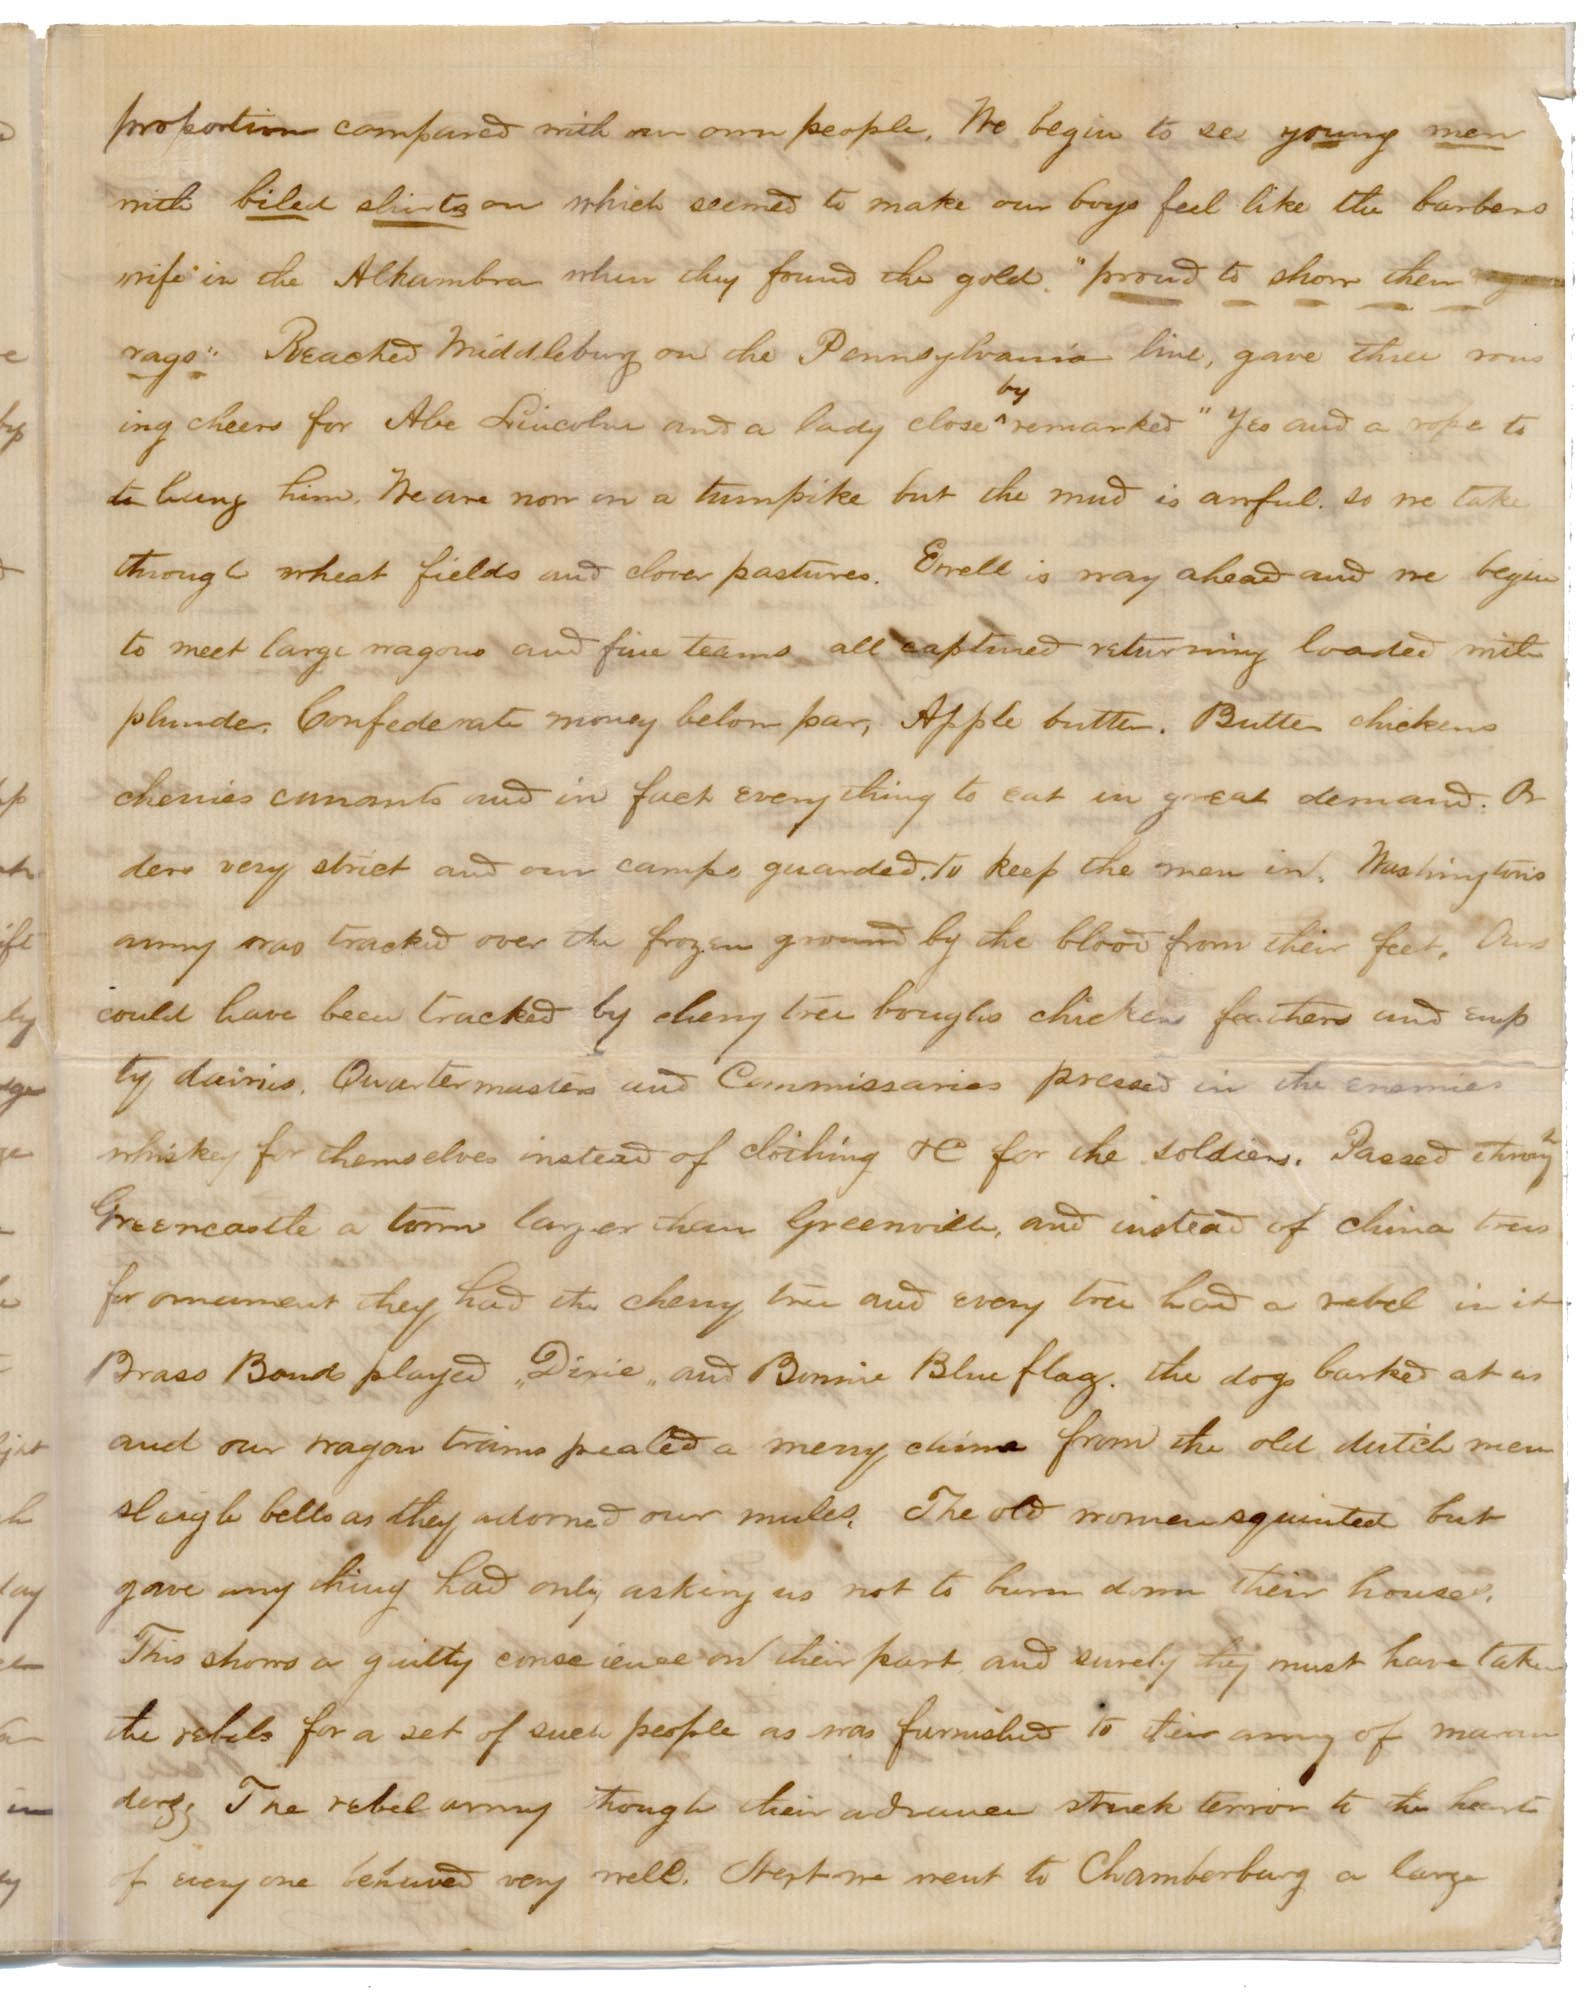 proportion compared with our own people. We begin to see young men
with biled shirts on which seemed to make our boys feel like the barbers
wife in the Alhambra when they found the gold. "proud to show their
rags" Reached Middleburg on the Pennsylvania line, gave three rous
ing cheers for Abe Lincoln and a lady close ^by remarked "Yes and a rope to
to hung him. We are now on a turnpike but the mud is awful. so we take
through wheat fields and clover pastures. Ewell is way ahead and we begin
to meet large wagons and fine teams all captured returning loaded with
plunder. Confederate money below par, Apple butter. Butter chickens
cherries currants and in fact every thing to eat in great demand. Or
ders very strict and our camps guarded. to keep the men in. Washington's
army was tracked over the frozen ground by the blood from their feet. Ours
could have been tracked by cherry tree boughs chicken feathers and emp
ty dairies. Quartermasters and Commissaries pressed in the enemies
whiskey for themselves instead of clothing &C for the soldiers. Passed through
Greencastle a town larger than Greenville, and instead of china trees
for ornament they had the cherry tree and every tree had a rebel in it
Brass Bands played "Dixie" and Bonnie Blue flag. the dogs barked at us
and our wagon trains pealed a merry chime from the old dutch men
sleigh bells as they adorned our mules. The old women squinted but
gave any thing had only asking us not to burn down their houses.
This shows a guilty conscience on their part and surely they must have taken
the rebels for a set of such people as was furnished to their army of marau
ders; The rebel army though their advance struck terror to the heart
of every one behaved very well. Next we went to Chambersburg a large